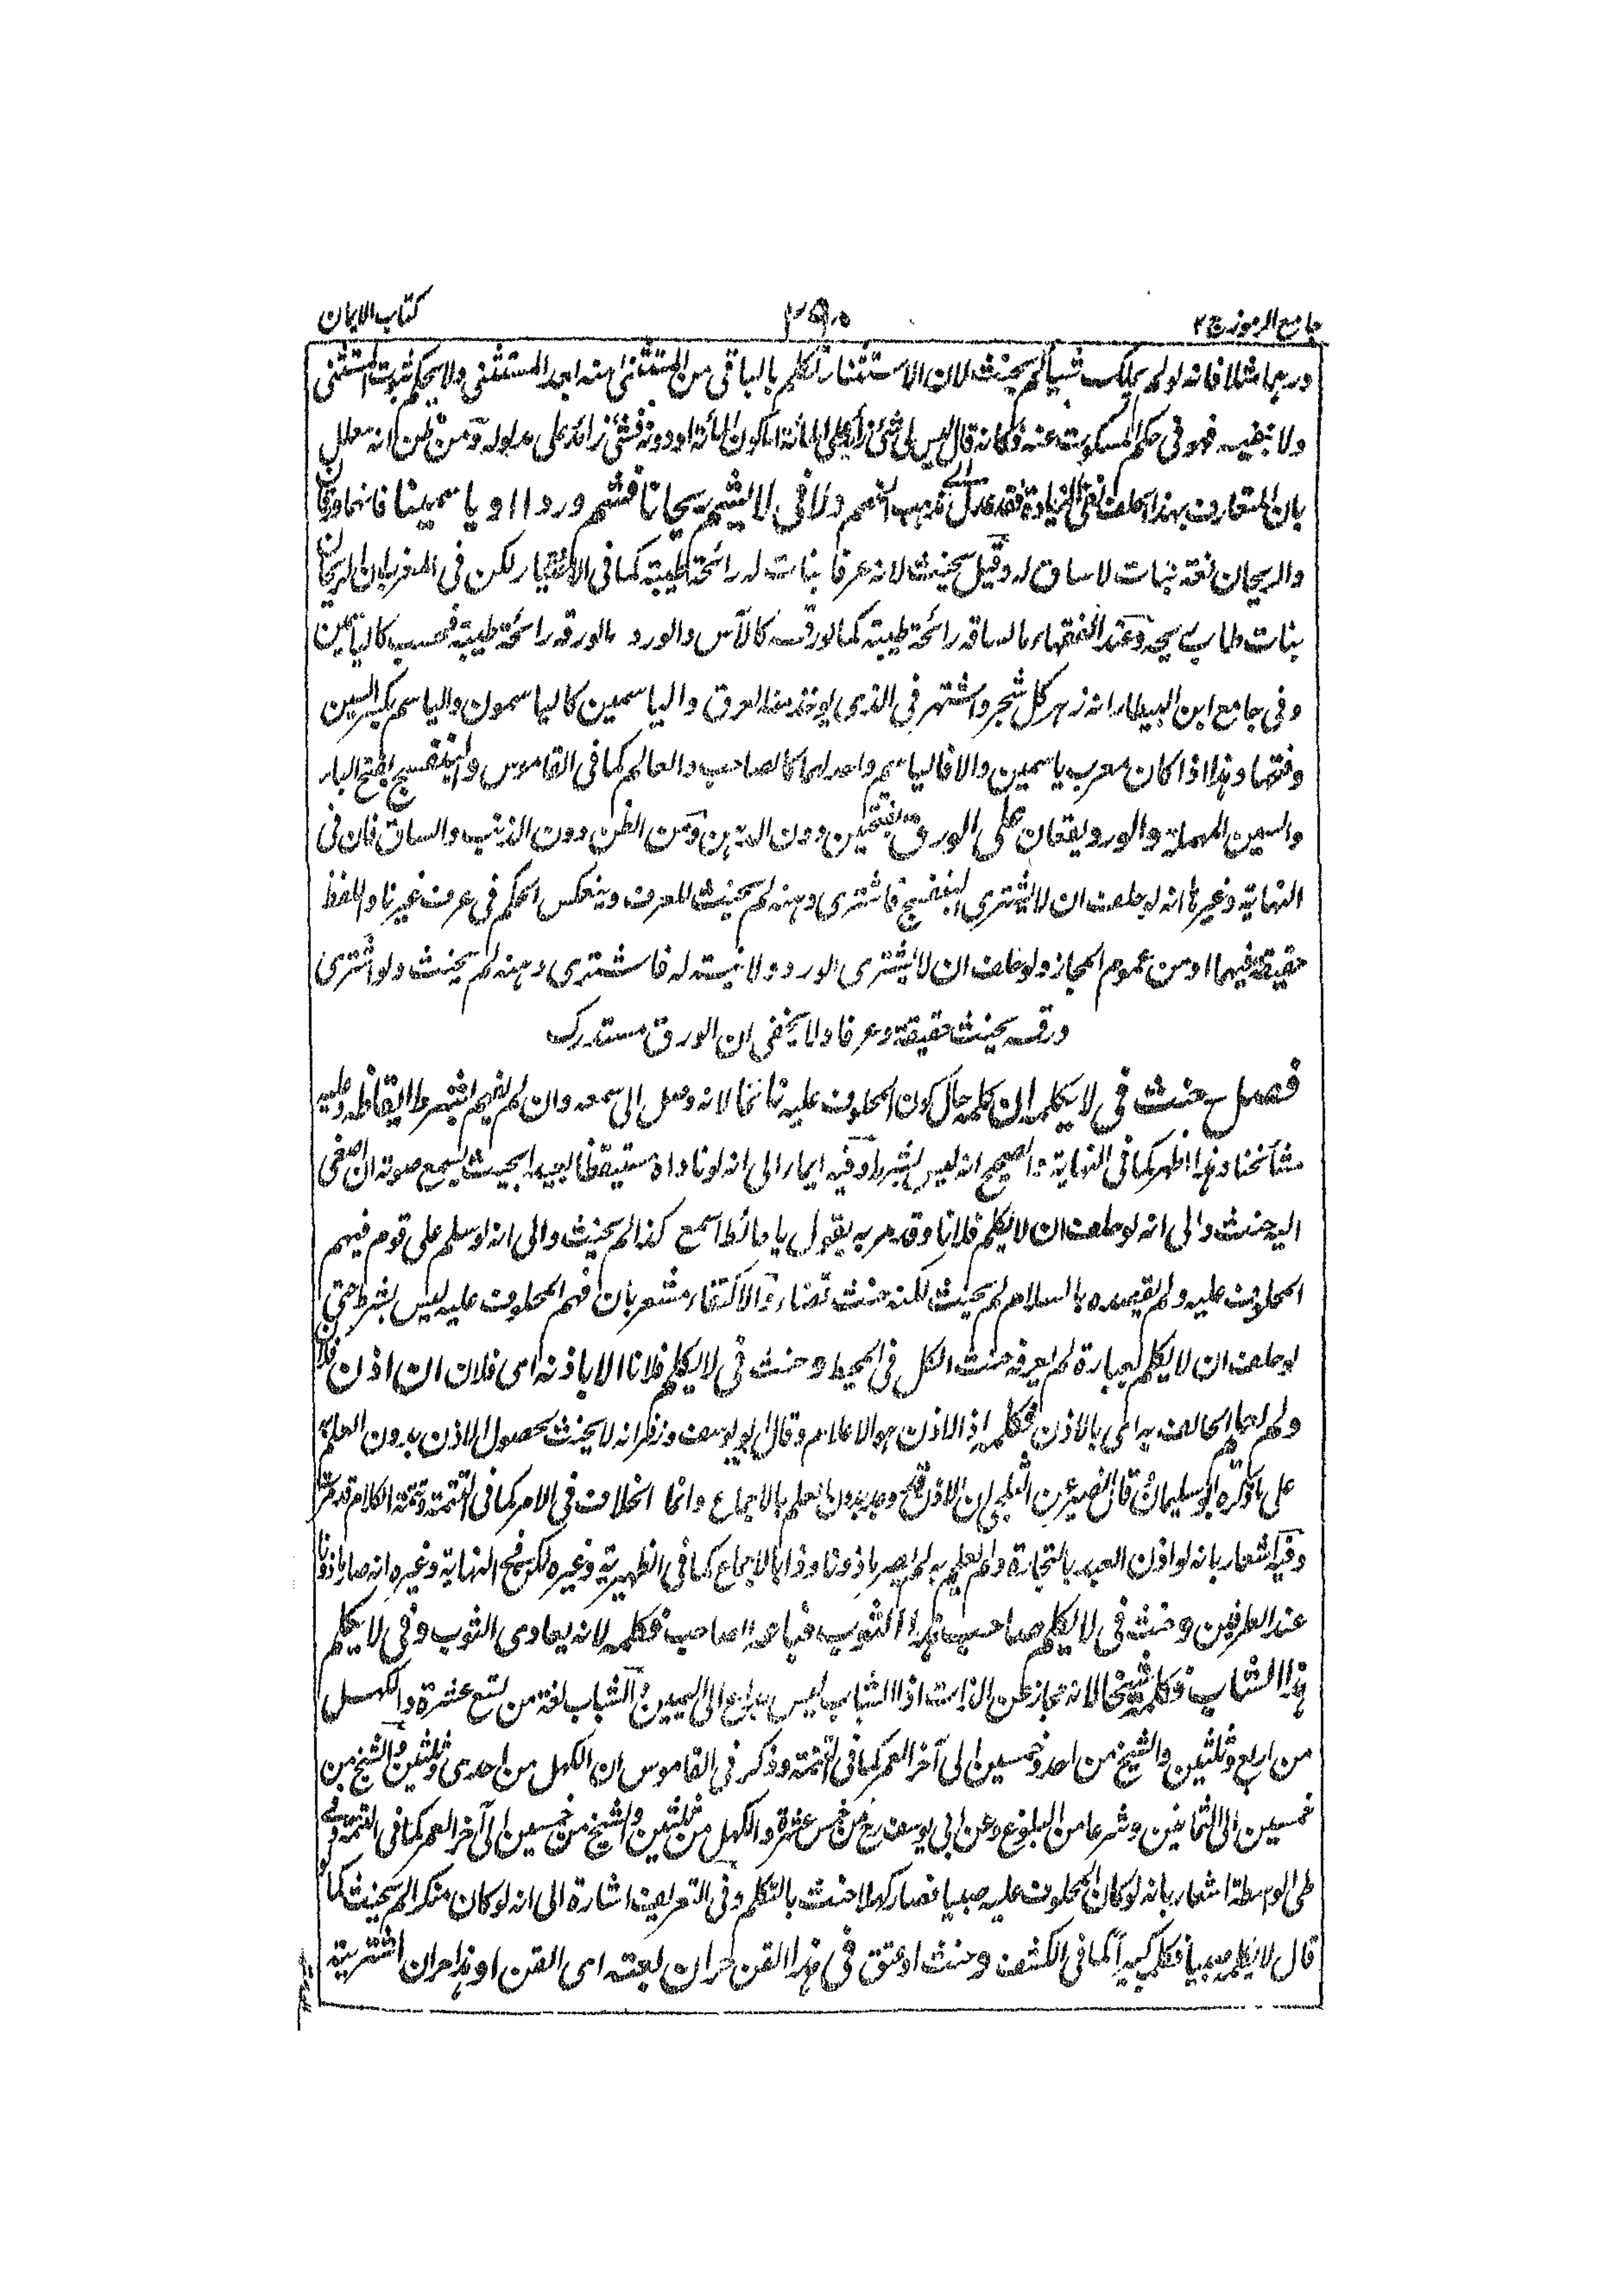 جامع الرموز ج ٢
٣٩٠
كتاب الايمان
درهما مثلا فانه لو لم يملك شيأ لم يحنث لان الاستثناء تكلم بالباقى من المستثنى منه بعد المستثنى ولا يحكم بثبوت المستثنى
ولا بنفيه فهو فى حكم المسكوت عنه فكانه قال ليس لى شئ زائد على المائة اما كون المائة او دونه فشئ زائد على مدلوله ومن ظن انه معلل
بان المتعارف بهذا الحلف نفى الزيادة فقد عدل الى مذهب الخصم ولا فى لا يشم ريحانا فشم وردا او ياسمينا فانهما ورقان
والريحان لغة نبات لا ساق له وقيل يحنث لانه عرفا نبات له رائحة طيبة كما فى الاختيار لكن فى المغرب ان الريحان
نبات طاب ريحه وعند الفقهاء ما لساقه رائحة طيبة كما لورقه كالآس والورد ما لورقه رائحة طيبة فحسب كالياسمين
وفى جامع ابن البيطار انه زهر كل شجر واشتهر فى الذى يوخذ منه العرق والياسمين كالياسمون والياسم بكسر السين
وفتحها وهذا اذا كان معرب ياسمين والا فالياسم واحد لهما كالصاحب والعالم كما فى القاموس والبنفسج بفتح الباء
والسين المهملة والورد يقعان على الورق بفتحتين دون الدهن ومن الظن دون الذنب والساق فان فى
النهاية وغيرها انه لو حلف ان لا يشترى البنفسج فاشترى دهنه لم يحنث للعرف وينعكس الحكم فى عرف غيرنا واللفظ
حقيقة فيهما او من عموم المجاز ولو حلف ان لا يشترى الورد ولا نية له فاشترى دهنه لم يحنث ولو اشترى
ورقه يحنث حقيقة وعرفا ولا يخفى ان الورق مستدرك
فصل حنث فى لا يكلمه ان كلمه حال كون المحلوف عليه نائما لانه وصل الى سمعه وان لم يفهم بشرط ايقاظه وعليه
مشائخنا وهذا اظهر كما فى النهاية والصحيح انه ليس بشرط وفيه ايماء الى انه لو ناداه مستيقظا بعيدا بحيث يسمع صوته ان اصغى
اليه حنث والى انه لو حلف ان لا يكلم فلانا وقد مر به يقول يا حائط اسمع كذا لم يحنث والى انه لو سلم على قوم فيهم
المحلوف عليه ولم يقصده بالسلام لم يحنث لكنه حنث قضاء والاكتفاء مشعر بان فهم المحلوف عليه ليس بشرط حتى
لو حلف ان لا يكلم بعبارة لم يعرفه حنث الكل فى المحيط وحنث فى لا يكلم فلانا الا باذنه اى فلان ان اذن فلان
ولم يعلم الحالف به اى بالاذن فكلمه اذ الاذن هو الاعلام وقال ابو يوسف وزفر انه لا يحنث لحصول الاذن بدون العلم به
على ما ذكره ابو سليمان قال نصير عن البلخى ان الاذن قد يوجد بدون العلم بالاجماع وانما الخلاف فى الامر كما فى التتمة وتتمة الكلام قد مرت
وفيه اشعار بانه لو اذن العبد بالتجارة ولم يعلم به لم يصر ماذونا وذا بالاجماع كما فى الظهيرية وغيره لكن فى النهاية وغيره انه صار ماذونا
عند الطرفين وحنث فى لا يكلم صاحب هذا الثوب فباعه صاحب فكلمه لانه يعادى الثوب وفى لا يكلم
هذا الشاب فكلمه شيخا لانه مجاز عن الذات اذ الشاب ليس بداع الى اليمين والشاب لغة من تسع عشرة والكهل
من اربع وثلثين والشيخ من احد وخمسين الى آخر العمر كما فى التتمة وذكر فى القاموس ان الكهل من احدى وثلثين والشيخ من
خمسين الى الثمانين وشرعا من البلوغ وعن ابى يوسف رح من خمس عشرة والكهل من ثلثين والشيخ من خمسين الى آخر العمر كما فى التتمة وفى
طى الواسطة اشعار بانه لو كان المحلوف عليه صبيا فصار كهلا حنث بالتكلم وفى التعريف اشارة الى انه لو كان منكرا لم يحنث كما لو
قال لا يكلم صبيا فكلم كبيرا كما فى الكشف وحنث اذ عتق فى هذا القن حر ان بعته اى القن او هذا حر ان اشتريته